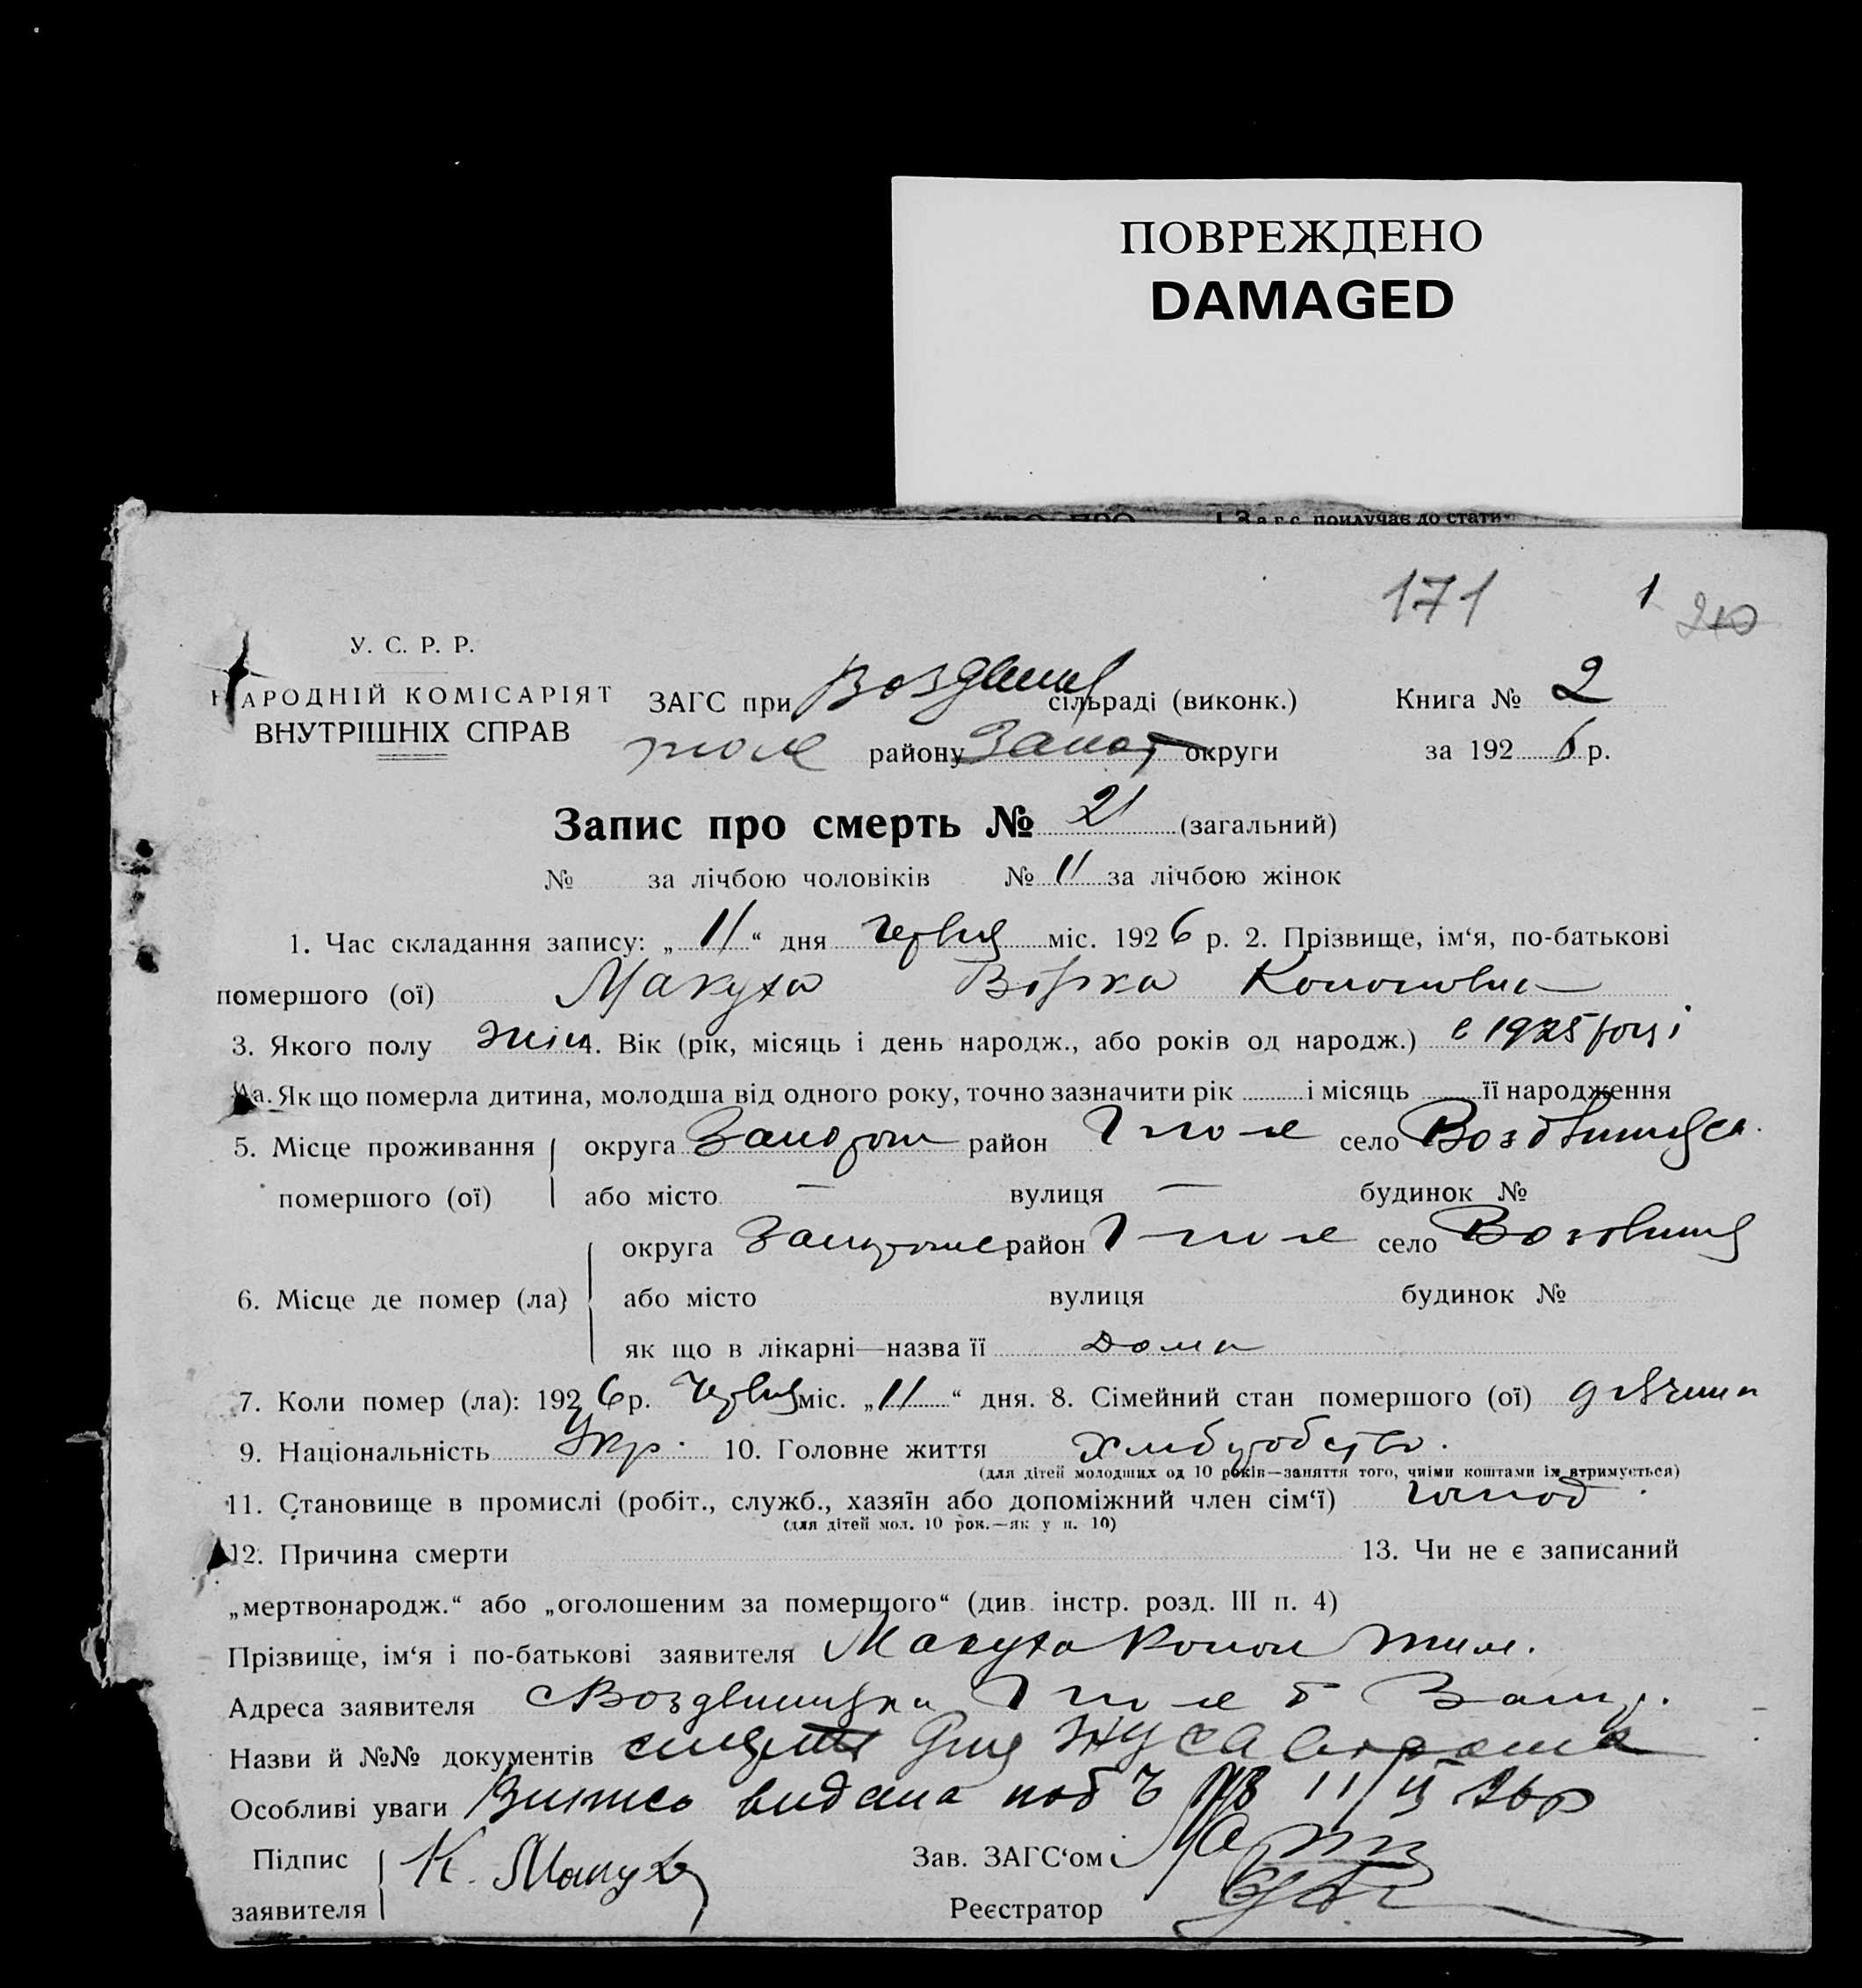 ПОВРЕЖДЕНО
DAMAGED
Загс прилучає до стати-
171 1 210
У. С. Р. Р.
НАРОДНІЙ КОМІСАРІЯТ
ВНУТРІШНІХ СПРАВ
ЗАГС при Воздвиж сільраді (виконк.) Книга № 2
району Запор округи за 1926 р.
Запис про смерть № 21 (загальний)
№ за лічбою чоловіків № 11 за лічбою жінок
1. Час складання запису: „11“ дня червня міс. 1926 р. 2. Прізвище, ім‘я, по-батькові
помершого (ої) Макуха Вірка Кононовна
3. Якого полу жін 4. Вік (рік, місяць і день народж., або років од народж.) в 1925 році
4а. Як що померла дитина, молодша від одного року, точно зазначити рік і місяць її народження
5. Місце проживання округа Запорож район село
помершого (ої) або місто — вулиця — будинок №
округа район село
6. Місце де помер (ла) або місто вулиця будинок №
як що в лікарні—назва її дома
7. Коли помер (ла): 1926 р. Червня міс. „11“ дня. 8. Сімейний стан помершого (ої) дівчина
9. Національність Укр. 10. Головне життя хліборобство.
(для дітей молодших од 10 років—заняття того, чиїми коштами їх втримується)
11. Становище в промислі (робіт., служб., хазяїн або допоміжний член сім‘ї)
(для дітей мол. 10 рок.—як у п. 10)
12. Причина смерти 13. Чи не є записаний
„мертвонародж.“ або „оголошеним за помершого“ (див. інстр. розд. III п. 4)
Прізвище, ім‘я і по-батькові заявителя Макуха Конон Тим.
Адреса заявителя
Назви й №№ документів
Особливі уваги Витись видана
Підпис К. Макуха Зав. ЗАГС‘ом
заявителя Реєстратор